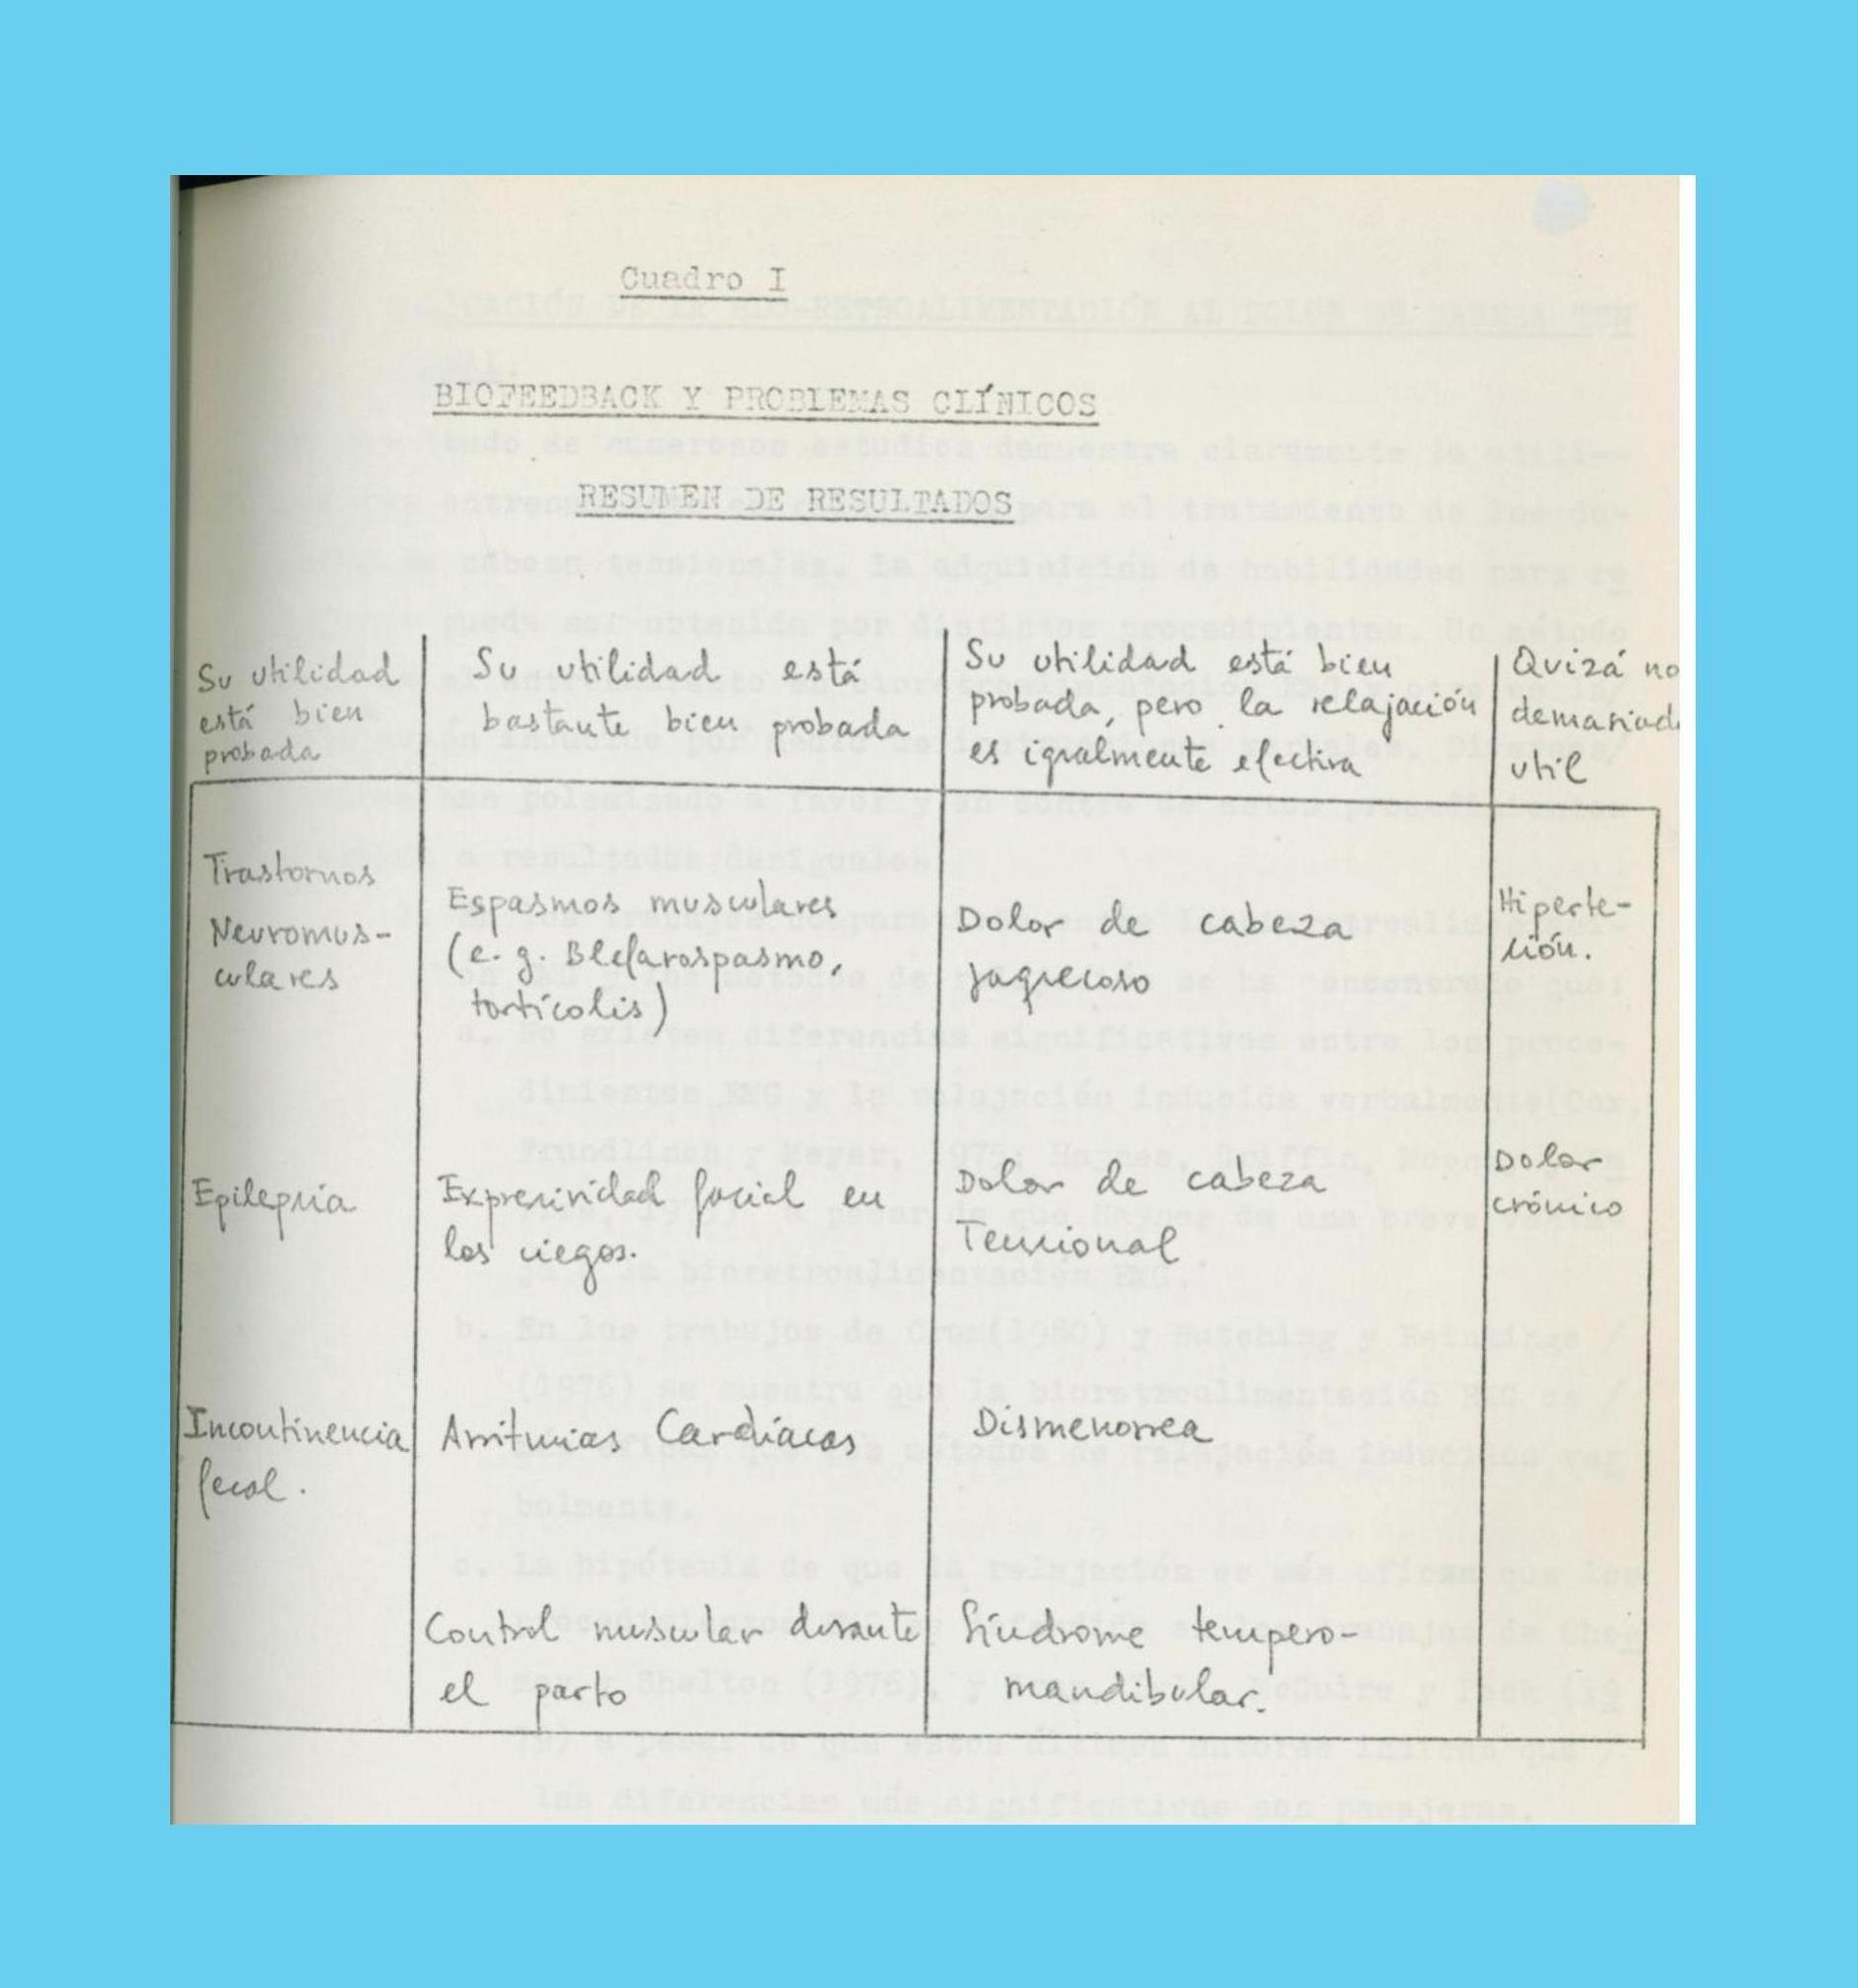 Cuadro I
BIOFEEDBACK Y PROBLEMAS CLÍNICOS
RESUMEN DE RESULTADOS
Su utilidad
está bien
probada
Su utilidad está
bastante bien probada
Su utilidad está bien
probada, pero la relajación
es igualmente efectiva
Quizá no
demasiad
util
Trastornos
Neuromus-
culares
Espasmos musculares
(e. g. Blefarospasmo,
tortícolis)
Dolor de cabeza
jaquecoso
Hiperte-
sión.
Epilepsia
Expresividad facial en
los ciegos.
Dolor de cabeza
Tensional
Dolor
crónico
Incontinencia
fecal.
Arritmias Cardíacas
Dismenorrea
Control muscular durante
el parto
Síndrome tempero-
mandibular.